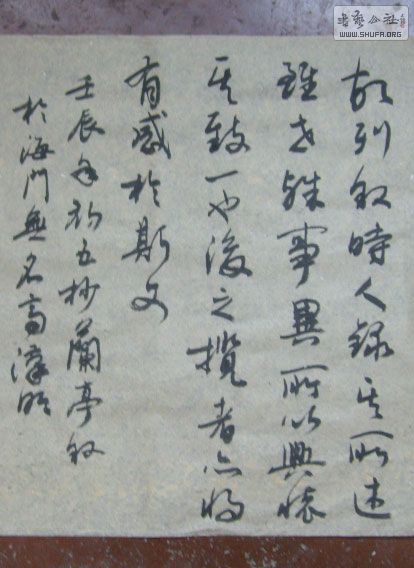 故列叙時人録其所述
雖世殊事異所以興懷
其致一也後之攬者亦將
有感於斯文
壬辰年初五抄蘭亭叙
於海門無名高
書藝公社
WWW.SHUFA.ORG